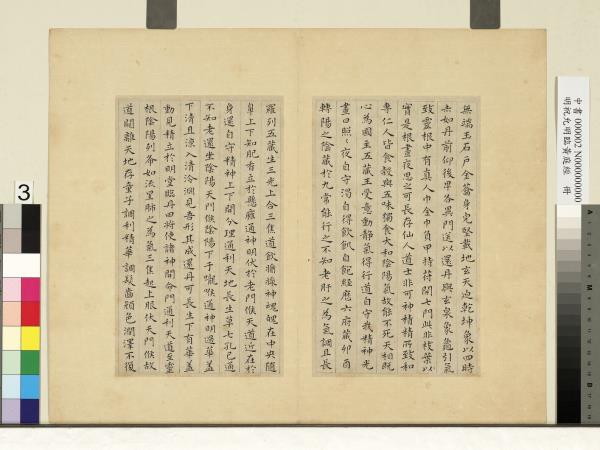 無端玉石戶金籥身完堅載地玄天迫乾坤象以四時
赤如丹前仰後卑各異門送以還丹與玄泉象龜引氣
致靈根中有真人巾金巾負甲持符開七門此非枝葉以
實是根晝夜思之可長存仙人道士非可神積精所致和
專仁人皆食穀與五味獨食大和陰陽氣故能不死天相既
心為國主五藏王受意動靜氣得行道自守我精神光
晝日照〻夜自守渴自得飲飢自飽經歷六府藏卯酉
轉陽之陰藏於九常能行之不知老肝之為氣調且長
羅列五藏生三光上合三焦道飲醬漿神魂魄在中央隨
鼻上下知肥香立於懸癰通神明伏於老門候天道近在於
身還自守精神上下開分理通利天地長生草七孔已通
不知老還坐陰陽天門候陰陽下于嚨喉通神明過華蓋
下清且涼入清泠淵見吾形其成還丹可長生下有華蓋
動見精立於明堂臨丹田將使諸神開命門通利天道至靈
根陰陽列布如流星肺之為氣三焦起上服伏天門候故
道闚離天地存童子調利精華調髮齒顏色潤澤不復
中書 000002 N000000000
明祝允明臨黃庭經 冊
3